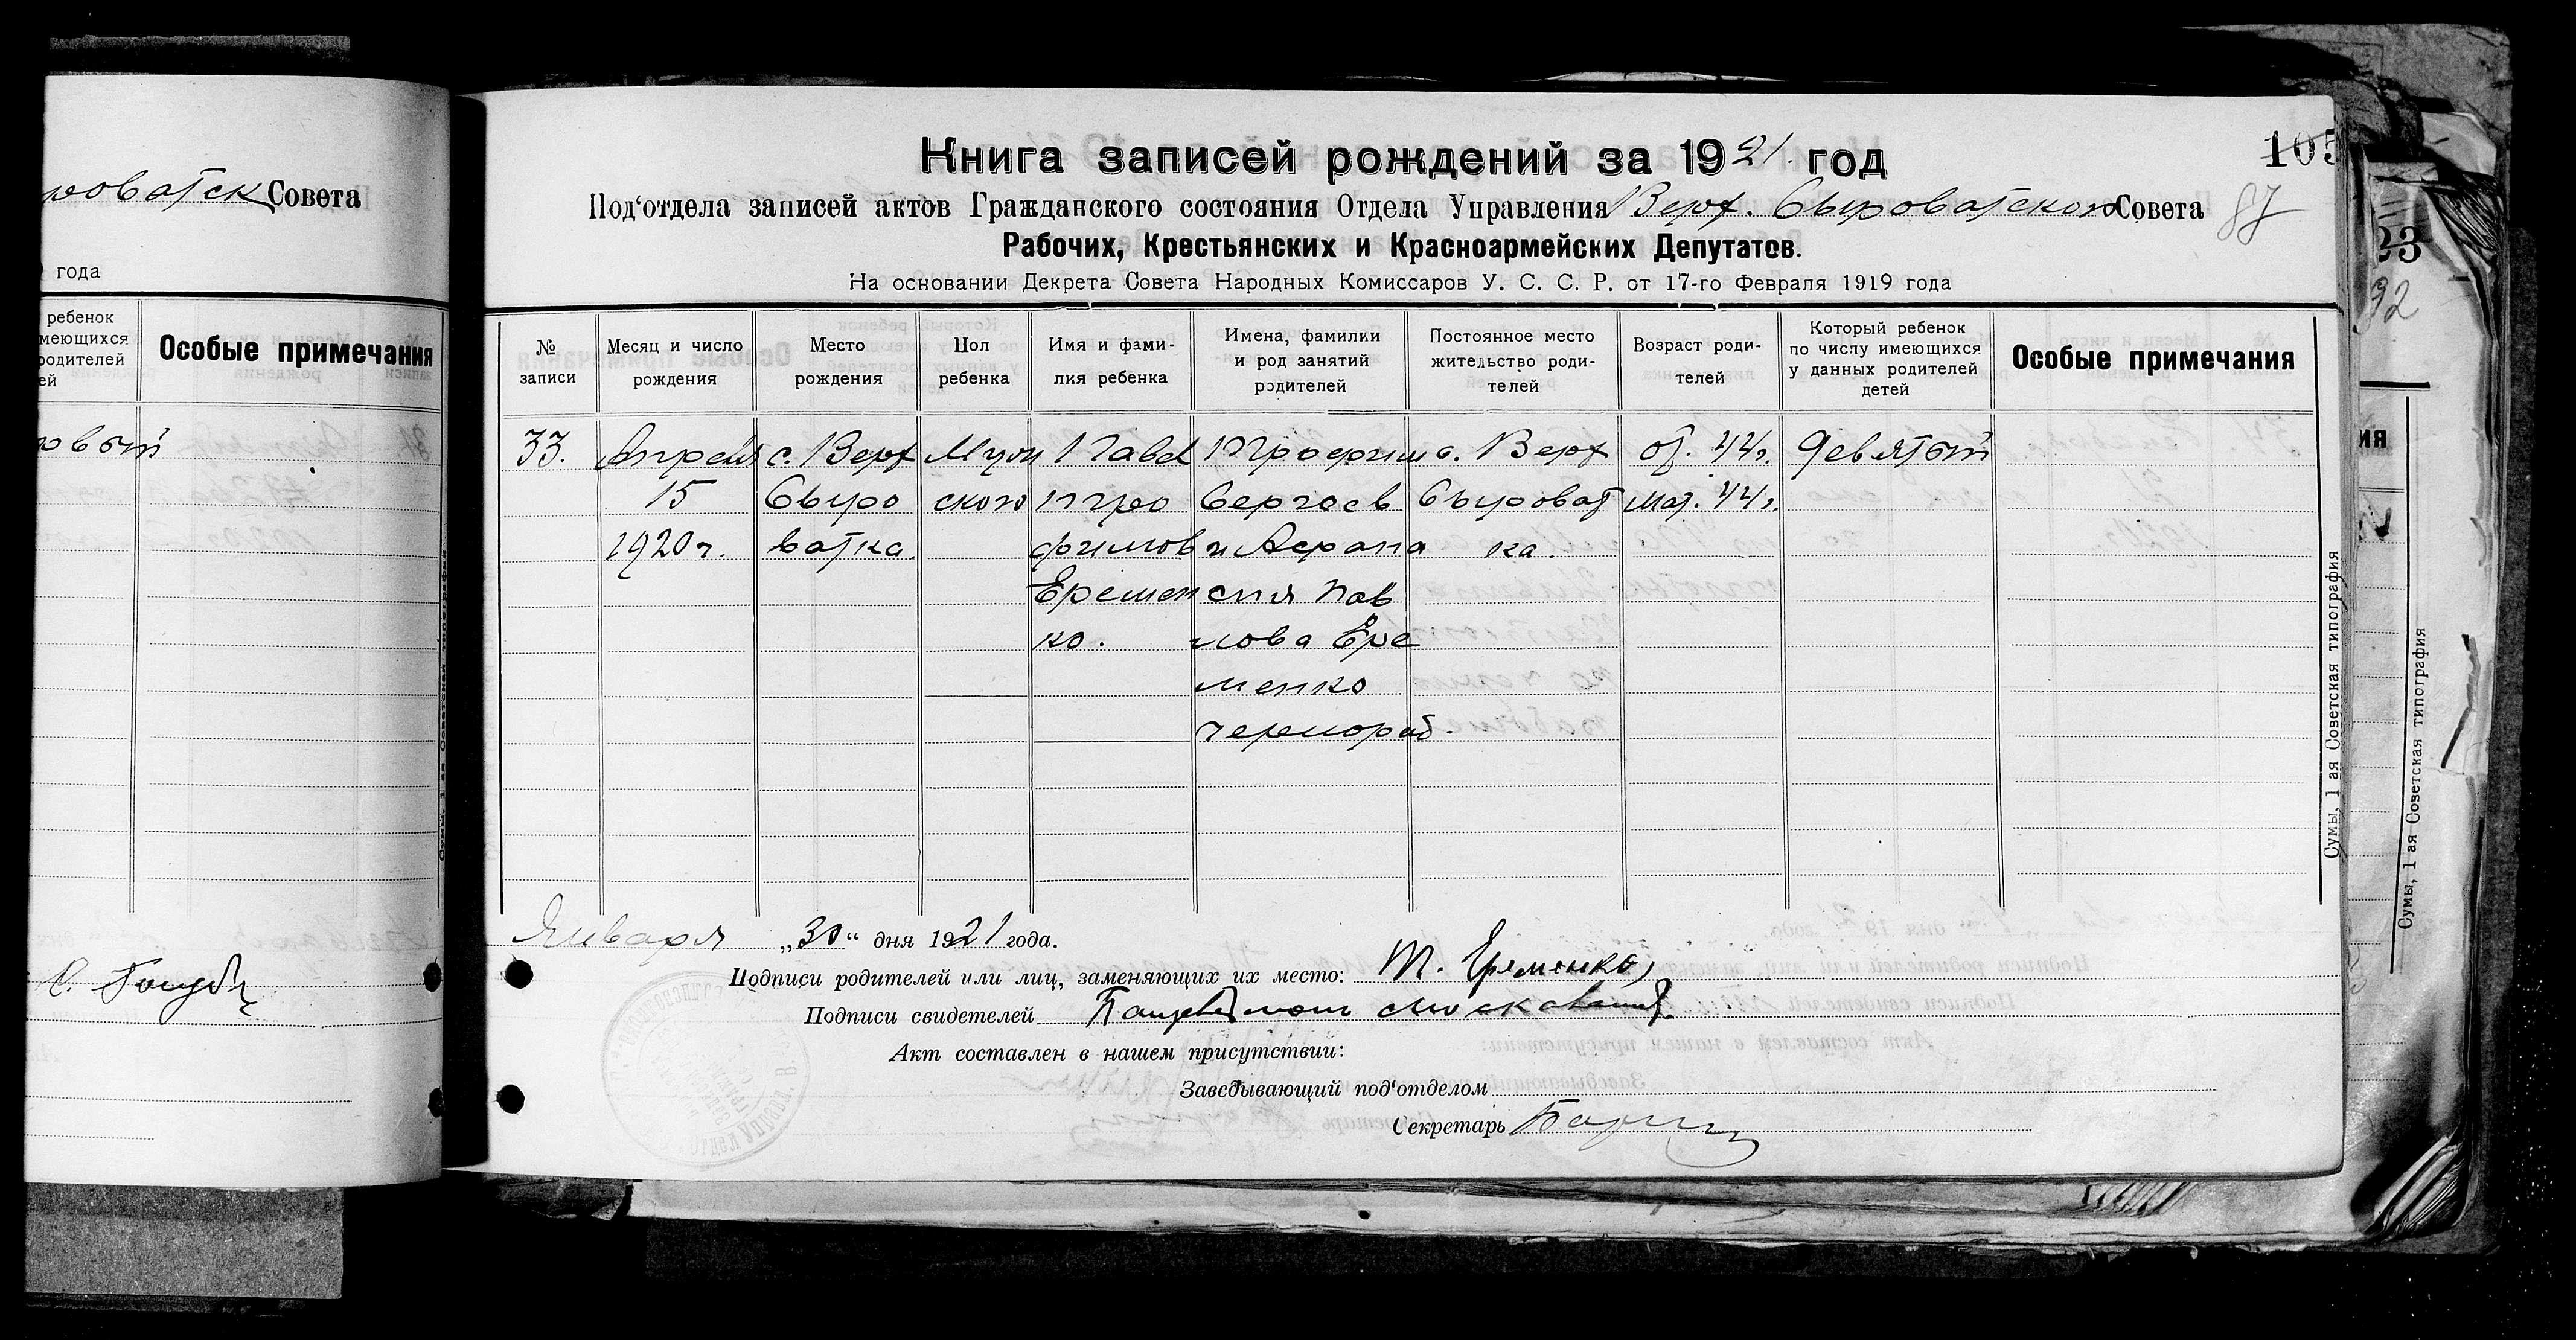 роватск Совета
года
ребенок
имеющихся
родителей
ей
Особые примечания
овый
Книга записей рождений за 1921. год
105
Под‘отдела записей актов Гражданского состояния Отдела Управления Верх. Сыроватского Совета
87
Рабочих, Крестьянских и Красноармейских Депутатов.
На основании Декрета Совета Народных Комиссаров У. С. С. Р. от 17-го Февраля 1919 года
№ записи
Месяц и число рождения
Место рождения
Пол ребенка
Имя и фами- лия ребенка
Имена, фамилки и род занятий родителей
Постоянное место жительство роди- телей
Возраст роди- телей
Который ребенок по числу имеющихся у данных родителей детей
Особые примечания
33. Апреля с. Верх Муж Павел Трофим с. Верх от. 44г. девятый
15 Сыро ского Тро Сергеев Сыроват мат. 44г.
1920г. ватка. фимов и Афана ка.
Еремен сия Пав
ко. лова Ере
менко
чернораб.
Января „30“ дня 1921 года.
Подписи родителей или лиц, заменяющих их место: Т. Еременко
Подписи свидетелей
Акт составлен в нашем присутствии:
Заведывающий под‘отделом
Секретарь
Сумы, 1 ая Советская типография
23
92
ия
Сумы, 1 ая Советская типография